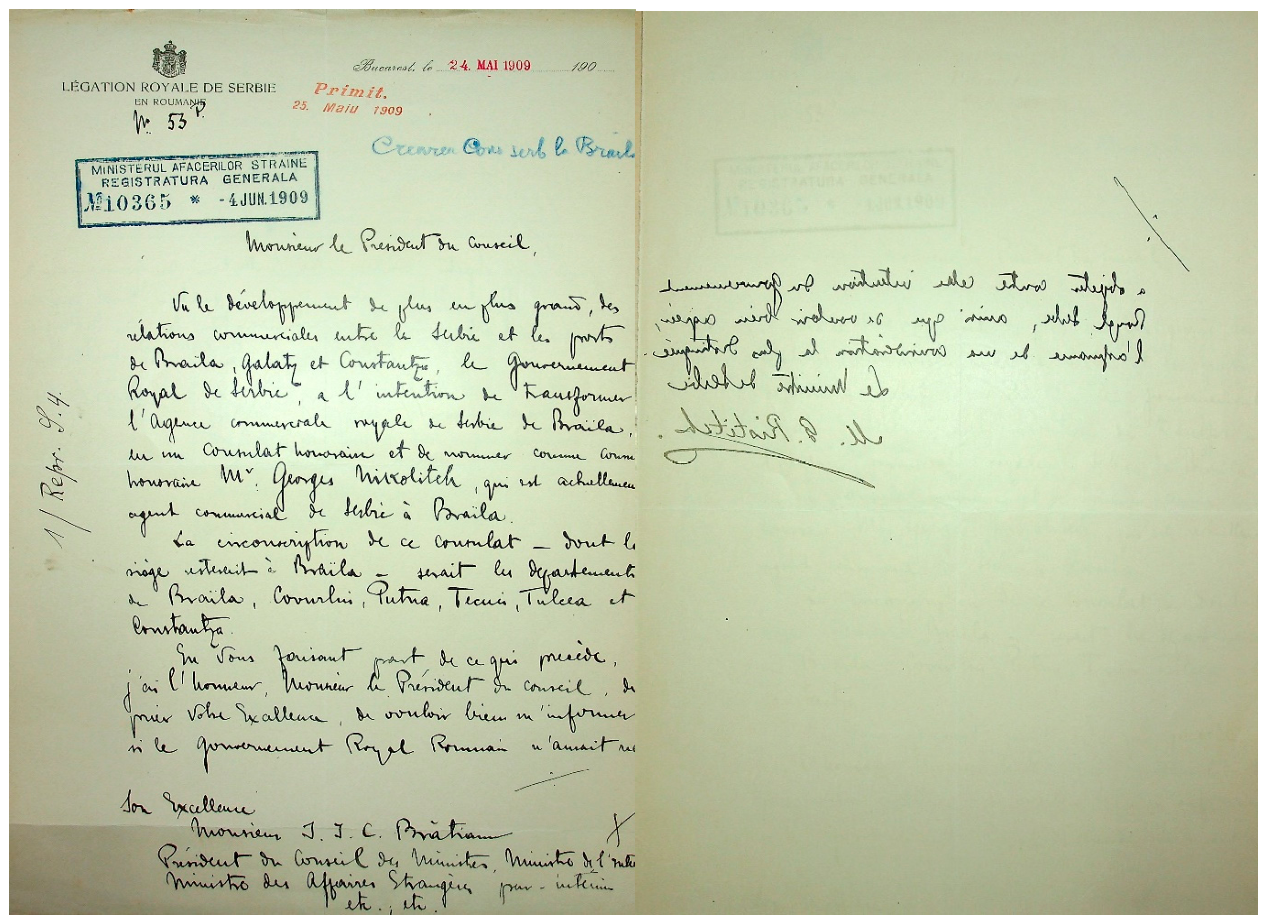 LÉGATION ROYALE DE SERBIE
EN ROUMANIE
Nº 53 P.
Bucarest, le 24. MAI 1909 190
Primit.
25. Maiu 1909
Crearea Cons serb la Brăila
MINISTERUL AFACERILOR STRAINE
REGISTRATURA GENERALA
Nº 10365 * -4 JUN. 1909
1/ Repr. S. 4.
Monsieur le Président du Conseil,
Vu le développement de plus en plus grand, des
rélations commerciales entre la Serbie et les ports
de Braïla, Galatz et Constantza, le Gouvernement
Royal de Serbie, a l'intention de transformer
l'Agence commerciale royale de Serbie de Braïla,
en un Consulat honoraire et de nommer comme consu
honoraire Mr. Georges Nikolitch, qui est actuellemen
agent commercial de Serbie à Braïla.
La circonscription de ce consulat – dont le
siège à Braïla – serait les départements
de Braïla, Covurlui, Putna, Tecuci, Tulcea et
Constantza.
En Vous faisant part de ce qui précède,
j'ai l'honneur, Monsieur le Président du conseil, de
prier Votre Excellence, de vouloir bien m'informer
si le Gouvernement Royal Roumain n'aurait
Son Excellence
Monsieur I. I. C. Brătianu
Président du Conseil des Ministres, Ministre de l'Inté
Ministre des Affaires Etrangères par-intérim
etc., etc.
a objecter contre cette intention du Gouvernement
Royal Serbe, ainsi que de vouloir bien agréer,
l'assurance de ma considération la plus distinguée.
Le Ministre de Serbie
M. G. Ristitch.